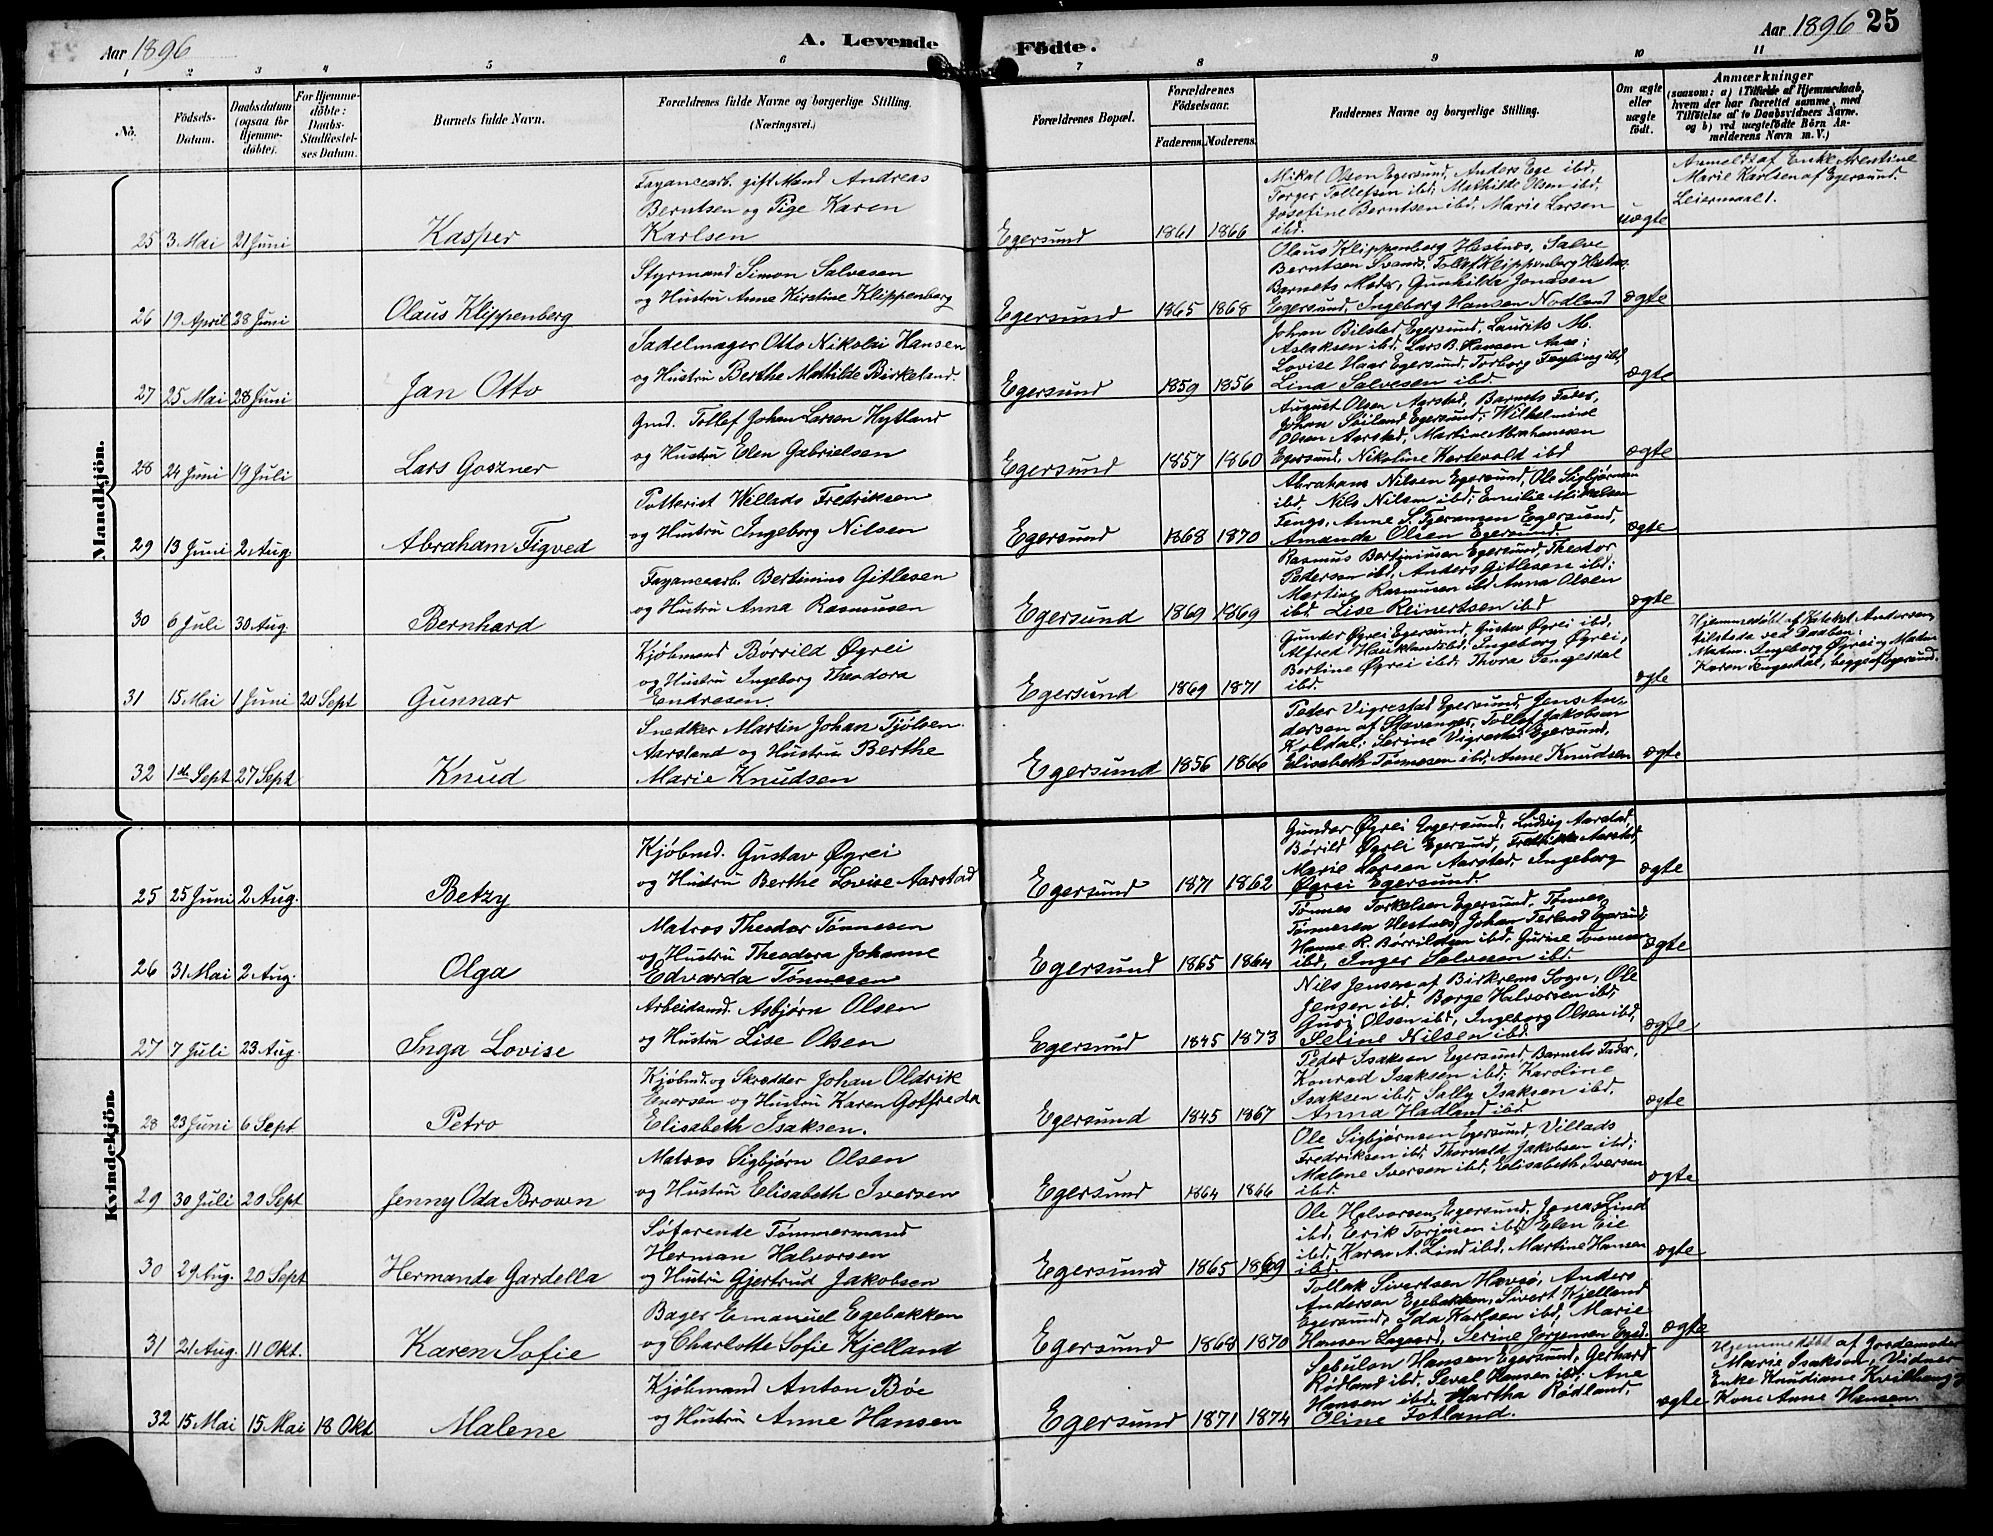 Aar 1896
A. Levende Födte.
Aar 1896 25
1 2 3 4 5 6 7 8 9 10 11
No.
Födsels-
Datum.
Daabsdatum
(ogsaa for
Hjemme-
döbte).
For Hjemme-
döbte:
Daabs-
Stadfæstel-
ses Datum.
Barnets fulde Navn.
Forældrenes fulde Navne og borgerlige Stilling.
(Næringsvei.)
Forældrenes Bopæl.
Forældrenes
Födselsaar.
Faderens. Moderens.
Faddernes Navne og borgerlige Stilling.
Om ægte
eller
uægte
födt.
Anmærkninger
(saasom: a) i Tilfælde af Hjemmedaab,
hvem der har forrettet samme, med
Tilföielse af to Daabsvidners Navne.
og b) ved uægtefödte Börn An-
melderens Navn m. V.)
Mandkjön.
25 3 Mai 21 Juni Kasper
Fayancearb. gift Mand Andreas
Berntsen og Pige Karen
Karlsen
Egersund 1861 1866
Mikal Olsen Egersund, Anders Ege ibd,
Torger Tollefsen ibd, Mathilde Olsen ibd,
Josefine Berntsen ibd, Marie Larsen
ibd.
uægte
Anmeldt af Enke Arentine
Marie Karlsen af Egersund.
Leiermaal 1.
26 19 April 28 Juni Olaus Klippenberg
Styrmand Simon Salvesen
og Hustru Anne Kirstine Klippenberg
Egersund 1865 1868
Olaus Klippenberg Hestnes, Salve
Berntsen Svands, Tollef Klippenberg Hestnes
Barnets Moder, Gunhilda Jonasen
Egersund, Ingeborg Hansen Nodland
ægte
27 25 Mai 28 Juni Jan Otto
Sadelmager Otto Nikolai Hansen
og Hustru Berthe Mathilde Birkeland.
Egersund 1859 1856
Johan Bilstad Egersund, Laurits M.
Aslaksen ibd, Lars B. Hansen Aase;
Lovise Haar Egersund, Torborg Fayling ibd,
Lina Salvesen ibd.
ægte
28 24 Juni 19 Juli Lars Goszner
Gmd. Tollef Johan Larsen Hytland
og Hustru Elen Gabrielsen
Egersund 1857 1860
August Olsen Aarstad, Barnets Fader,
Johan Söiland Egersund; Wilhelmine
Olsen Aarstad, Martine Abrahamsen
Egersund, Nikoline Kartevold ibd
ægte
29 13 Juni 2 Aug. Abraham Figved
Potterist Willads Fredriksen
og Hustru Ingeborg Nilsen
Egersund 1868 1870
Abraham Nilsen Egersund, Ole Sigbjørnsen
ibd, Nils Nilsen ibd; Emilie Mikalsen
Tengs, Anne S. Egersund,
Amanda Olsen Egersund.
ægte
30 6 Juli 30 Aug. Bernhard
Fayancearb. Bertinius Gitlesen
og Hustru Anna Rasmusen
Egersund 1869 1869
Rasmus Bertiniusen Egersund, Thestor
Pedersen ibd, Anders Gitlesen ibd;
Martine Rasmusen ibd Anna Olsen
ibd. Lise Reinertsen ibd
ægte
31 15 Mai 1 Juni 20 Sept Gunnar
Kjöbmand Börrild Øgrei
og Hustru Ingeborg Theodora
Endresen.
Egersund 1869 1871
Gunder Øgrei Egersund, Gustav Øgrei ibd,
Alfred Hauklands ibd; Ingeborg Øgrei,
Bertine Øgrei ibd, Thora Tengesdal
ibd.
ægte
Hjemmedöbt af Kateket Andersen,
tilstede ved Daaben:
Madm. Ingeborg Øgrei og Madm
Karen Tengesdal, begge af Egersund.
32 1ste Sept 27 Sept Knud
Snedker Martin Johan Fjölsen
Aarsland og Hustru Berthe
Marie Knudsen
Egersund 1856 1866
Peder Vigrestad Egersund, Jens An-
dersen af Stavanger, Tollef Jakobsen
Koldal; Serine Vigrestad Egersund,
Elisabeth Tönnesen ibd, Anne Knudsen
ægte
Kvindekjön.
25 25 Juni 2 Aug. Betzy
Kjöbmd. Gustav Øgrei
og Hustru Berthe Lovise Aarstad
Egersund 1871 1862
Gunder Øgrei Egersund, Ludvig Aarstad,
Börild Øgrei Egersund, Fredrikke Aarstad,
Marie Larsen Aarstad, Ingeborg
Øgrei Egersund.
ægte
26 31 Mai 2 Aug. Olga
Matros Theodor Tönnesen
og Hustru Theodora Johanne
Edvarda Tönnesen
Egersund 1865 1864
Tönnes Torkelsen Egersund, Tönnes
Tönnesen Hestnes, Johan Terland Egersund;
Hanne R. Börrildsen ibd, Gurine Tönnesen
ibd, Inger Salvesen ibd.
ægte
27 7 Juli 23 Aug. Inga Lovise
Arbeidsmd. Asbjörn Olsen
og Hustru Lise Olsen
Egersund 1845 1873
Nils Jensen af Birkrems Sogn, Ole
Jensen ibd. Börge Halvorsen ibd;
Guri Olsen ibd, Ingeborg Olsen ibd,
Seline Nilsen ibd.
ægte
28 23 Juni 6 Sept Petro
Kjöbmd. og Skrædder Johan Oldrik
Enersen og Hustru Karen Gotfreda
Elisabeth Isaksen.
Egersund 1845 1867
Peder Isaksen Egersund, Barnets Fader,
Konrad Isaksen ibd; Karoline
Isaksen ibd, Sally Isaksen ibd,
Anna Hadland ibd
ægte
29 30 Juli 20 Sept Jenny Oda Brown
Matros Sigbjörn Olsen
og Hustru Elisabeth Iversen
Egersund 1864 1866
Ole Sigbjørnsen Egersund, Villads
Fredriksen ibd, Thorvald Jakobsen ibd;
Malene Iversen ibd, Elisabeth Iversen
ibd.
ægte
30 29 Aug. 20 Sept Hermanda Gardella
Söfarende Tömmermand
Herman Halvorsen
og Hustru Gjertrud Jakobsen
Egersund 1865 1869
Ole Halvorsen Egersund, Jonas Lind
ibd, Erik Torjusen ibd, Elen Eie
ibd, Karen A. Lind ibd, Martine Hansen
ibd.
ægte
31 21 Aug. 11 Okt. Karen Sofie
Bager Emanuel Egebakken
og Charlotte Sofie Kjelland
Egersund 1868 1870
Tollak Sivertsen Havsö, Anders
Andersen Egebakken, Sivert Kjelland
Egersund; Ida Karlsen ibd, Marie
Hansen Lagaard, Serine Jörgensen Egsd.
ægte
32 15 Mai 15 Mai 18 Okt Malene
Kjöbmand Anton Böe
og Hustru Anne Hansen
Egersund 1871 1874
Sebulon Hansen Egersund, Gerhard
Rödland ibd, Seval Hansen ibd; Ane
Hansen ibd, Martha Rödland,
Oline Fotland.
ægte
Hjemmedöbt af Jordemoder
Marie Isaksen, Vidner
Enke Knudiane Kvilhaug og
Kone Anne Hansen.